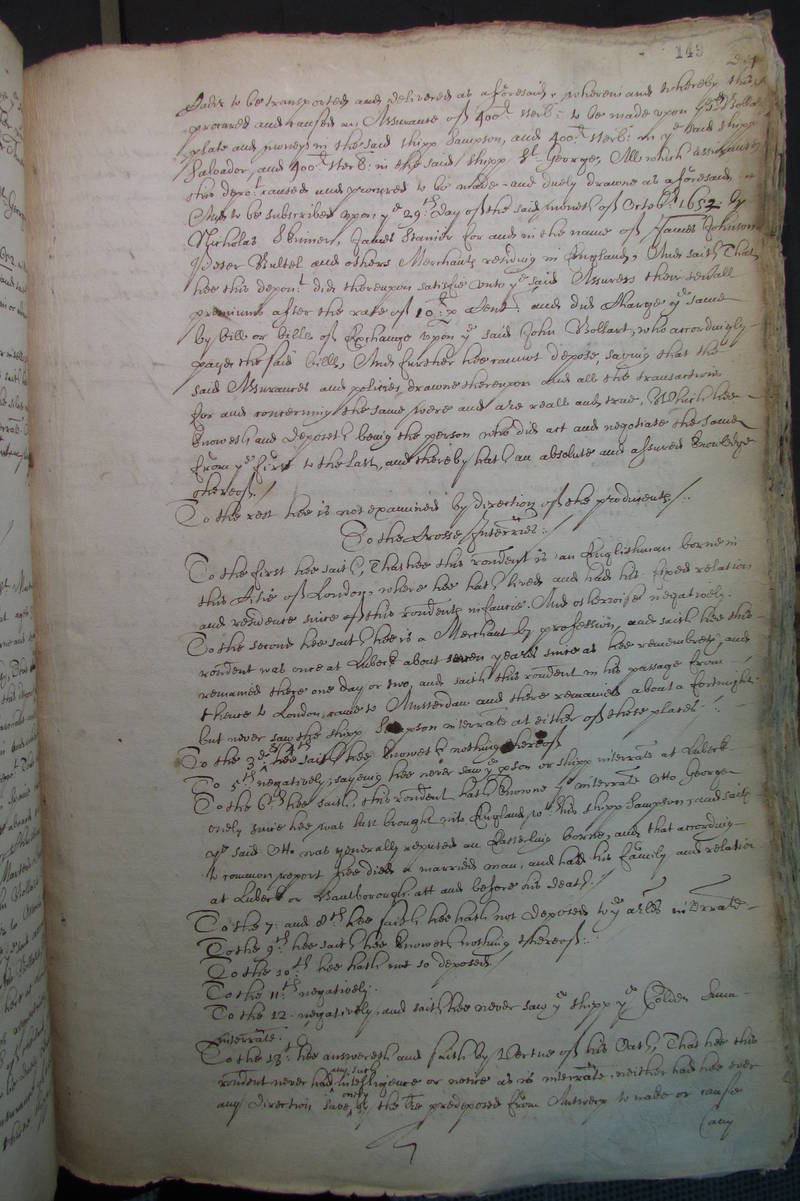 143
Did
to be transported and delivered as aforesaid, wherein and whereby this
procured and caused an Assurance of 400li sterb: to be made upon
plate and moneys in the said shipp Sampson, and 400li sterb: in ye said shipp
Salvador, and 400li sterb: in the said shipp St George, All which assurances
this depot caused and procured to be made and duely drawne as aforesaid
And to be subscribed upon ye 29th day of the said moneth of Octobr 1652 by
Nicholas Skinner, James Stanier for and in the name of James Johnson
Peter Bultel and others Merchants residing in England, And saith That
hee this depont did thereupon satisfie unto ye said Assurers their severall
premiums after the rate of 10li p Cent: and did Charge ye same
by bill or bills of Exchange upon ye said John Bollart, who accordingly
payed the said bills, And further hee cannot depose, saying that the
said Assurances and policies drawne thereupon and all the transactions
for and concerning the same were and are reall and true, Which hee
knoweth and deposeth being the person who did act and negotiate the same
from ye first to the last, and thereby hath an absolute and assured knowledge
thereof./
To the rest hee is not examined by direction of the producents/.
To the Crosse Interries:/
To the first hee saith, That hee this rondent is an Englishman borne in
this Citie of London, where hee hath lived and had his fixed relation
and residence since of this rondents infancie. And otherwise negatively.
To the second hee saith hee is a Merchant by profession, and saith hee this
rondent was once at Lubeck about seven yeares since as hee remembreth, and
remained there one day or two, and saith this rondent in his passage from
thence to London, came to Amsterdam and there remained about a fortnight.
but never saw the shipp Sampson interrate at either of these places.
To the 3d & 4th hee saith hee knoweth nothing thereof
To 5th negatively, sayeing hee never saw ye pson or shipp interrate at Lubeck
To the 6th hee saith, this rondent hath knowne ye interrate Otto George
onely since hee was last brought into England wth his shipp Sampson, and saith
ye said Otto was generally reputed an Easterling borne, and that according
to common report hee died a married man, and had his family and relation
at Lubeck or att and before his death./
To the 7 and 8th hee saith hee hath not deposed to ye arles interrate
To the 9th hee saith hee knoweth nothing thereof:
To the 10th hee hath not so deposed
To the 11th negatively.
To the 12 negatively, and saith hee never saw ye shipp ye Golden
Interrate.
To the 13t hee answereth and saith by Vertue of his Oath, That hee this
rondent never had any such intelligence or notice as is interrate, neither had hee ever
any direction save onely by the tre predeposed from Antwerp to make or cause
(any